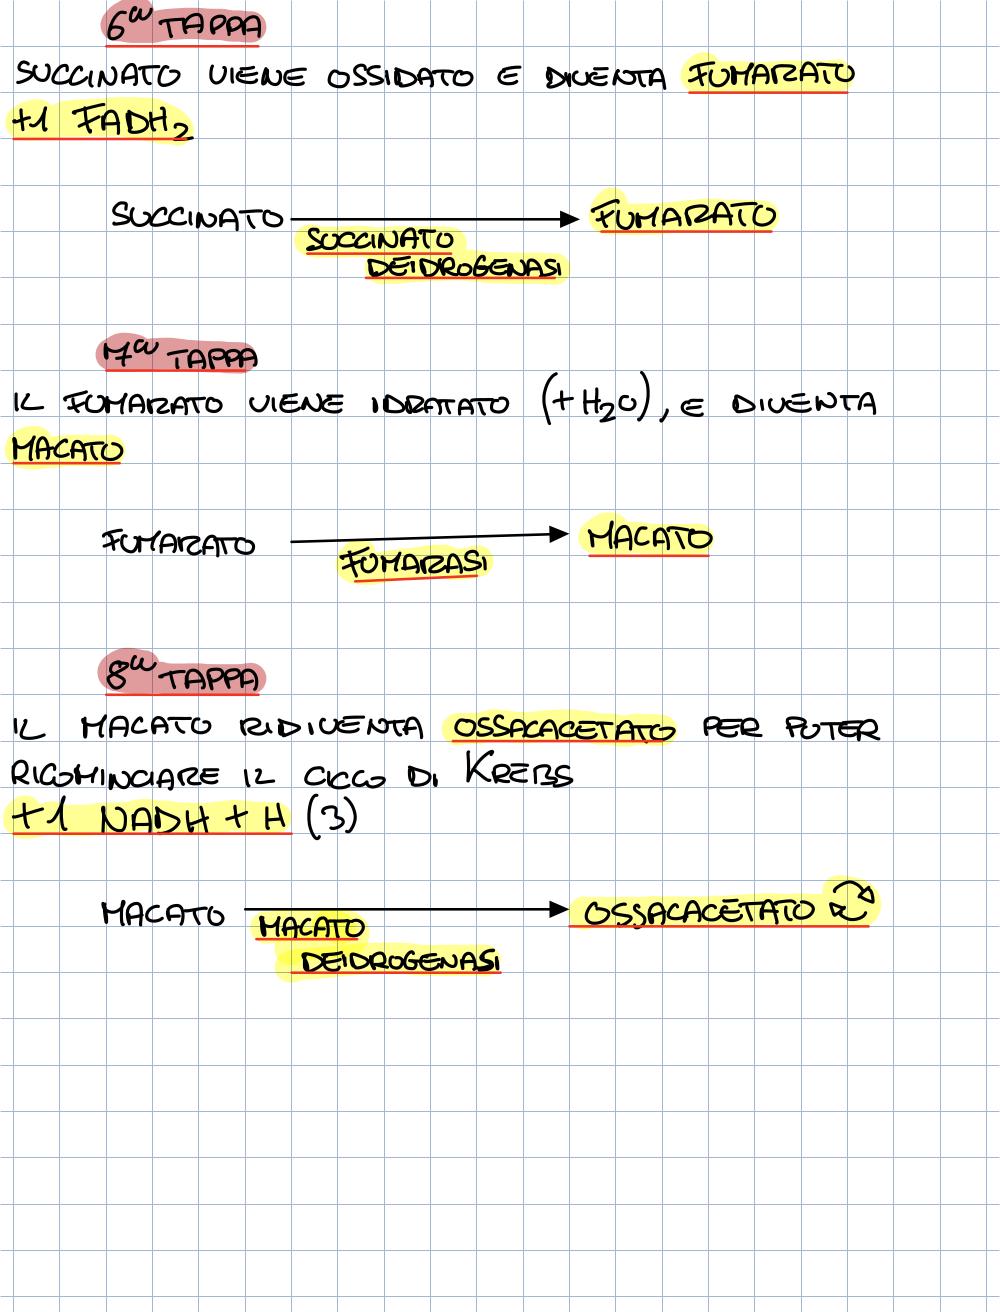 6ª TAPPA
SUCCINATO VIENE OSSIDATO E DIVENTA FUMARATO
+1 FADH₂
SUCCINATO → FUMARATO
SUCCINATO
DEIDROGENASI
7ª TAPPA
IL FUMARATO VIENE IDRATATO (+H₂O), E DIVENTA
MALATO
FUMARATO → MALATO
FUMARASI
8ª TAPPA
IL MALATO RIDIVENTA OSSALACETATO PER POTER
RICOMINCIARE IL CICLO DI KREBS
+1 NADH + H (3)
MALATO → OSSALACETATO
MALATO
DEIDROGENASI